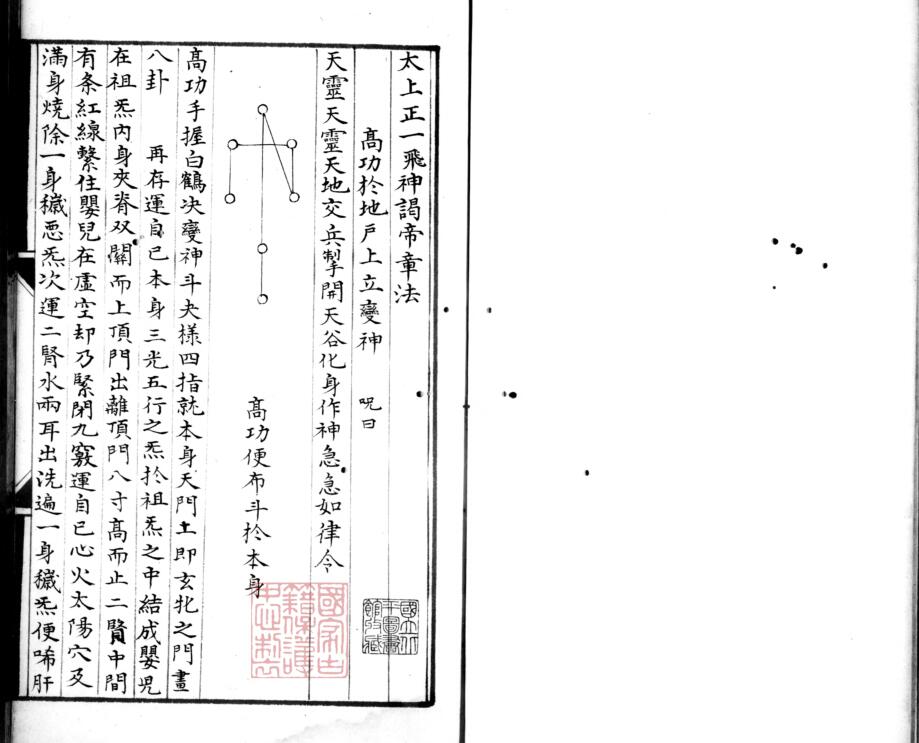 太上正一飛神謁帝章法
高功於地戶上立變神　呪曰
天靈天靈天地交兵掣開天谷化身作神急急如律令
高功便布斗於本身
高功手握白鶴决變神斗夬樣四指就本身天門土即玄牝之門畫
八卦　再存運自已本身三光五行之炁於祖炁之中結成嬰児
在祖炁內身夾脊双關而上頂門出離頂門八寸高而止二腎中間
有条紅線繫住嬰兒在虛空却乃緊閉九竅運自已心火太陽穴及
滿身燒除一身穢惡炁次運二腎水兩耳出洗遍一身穢炁便唏肝
國家古籍保護
國立北平圖書館收藏